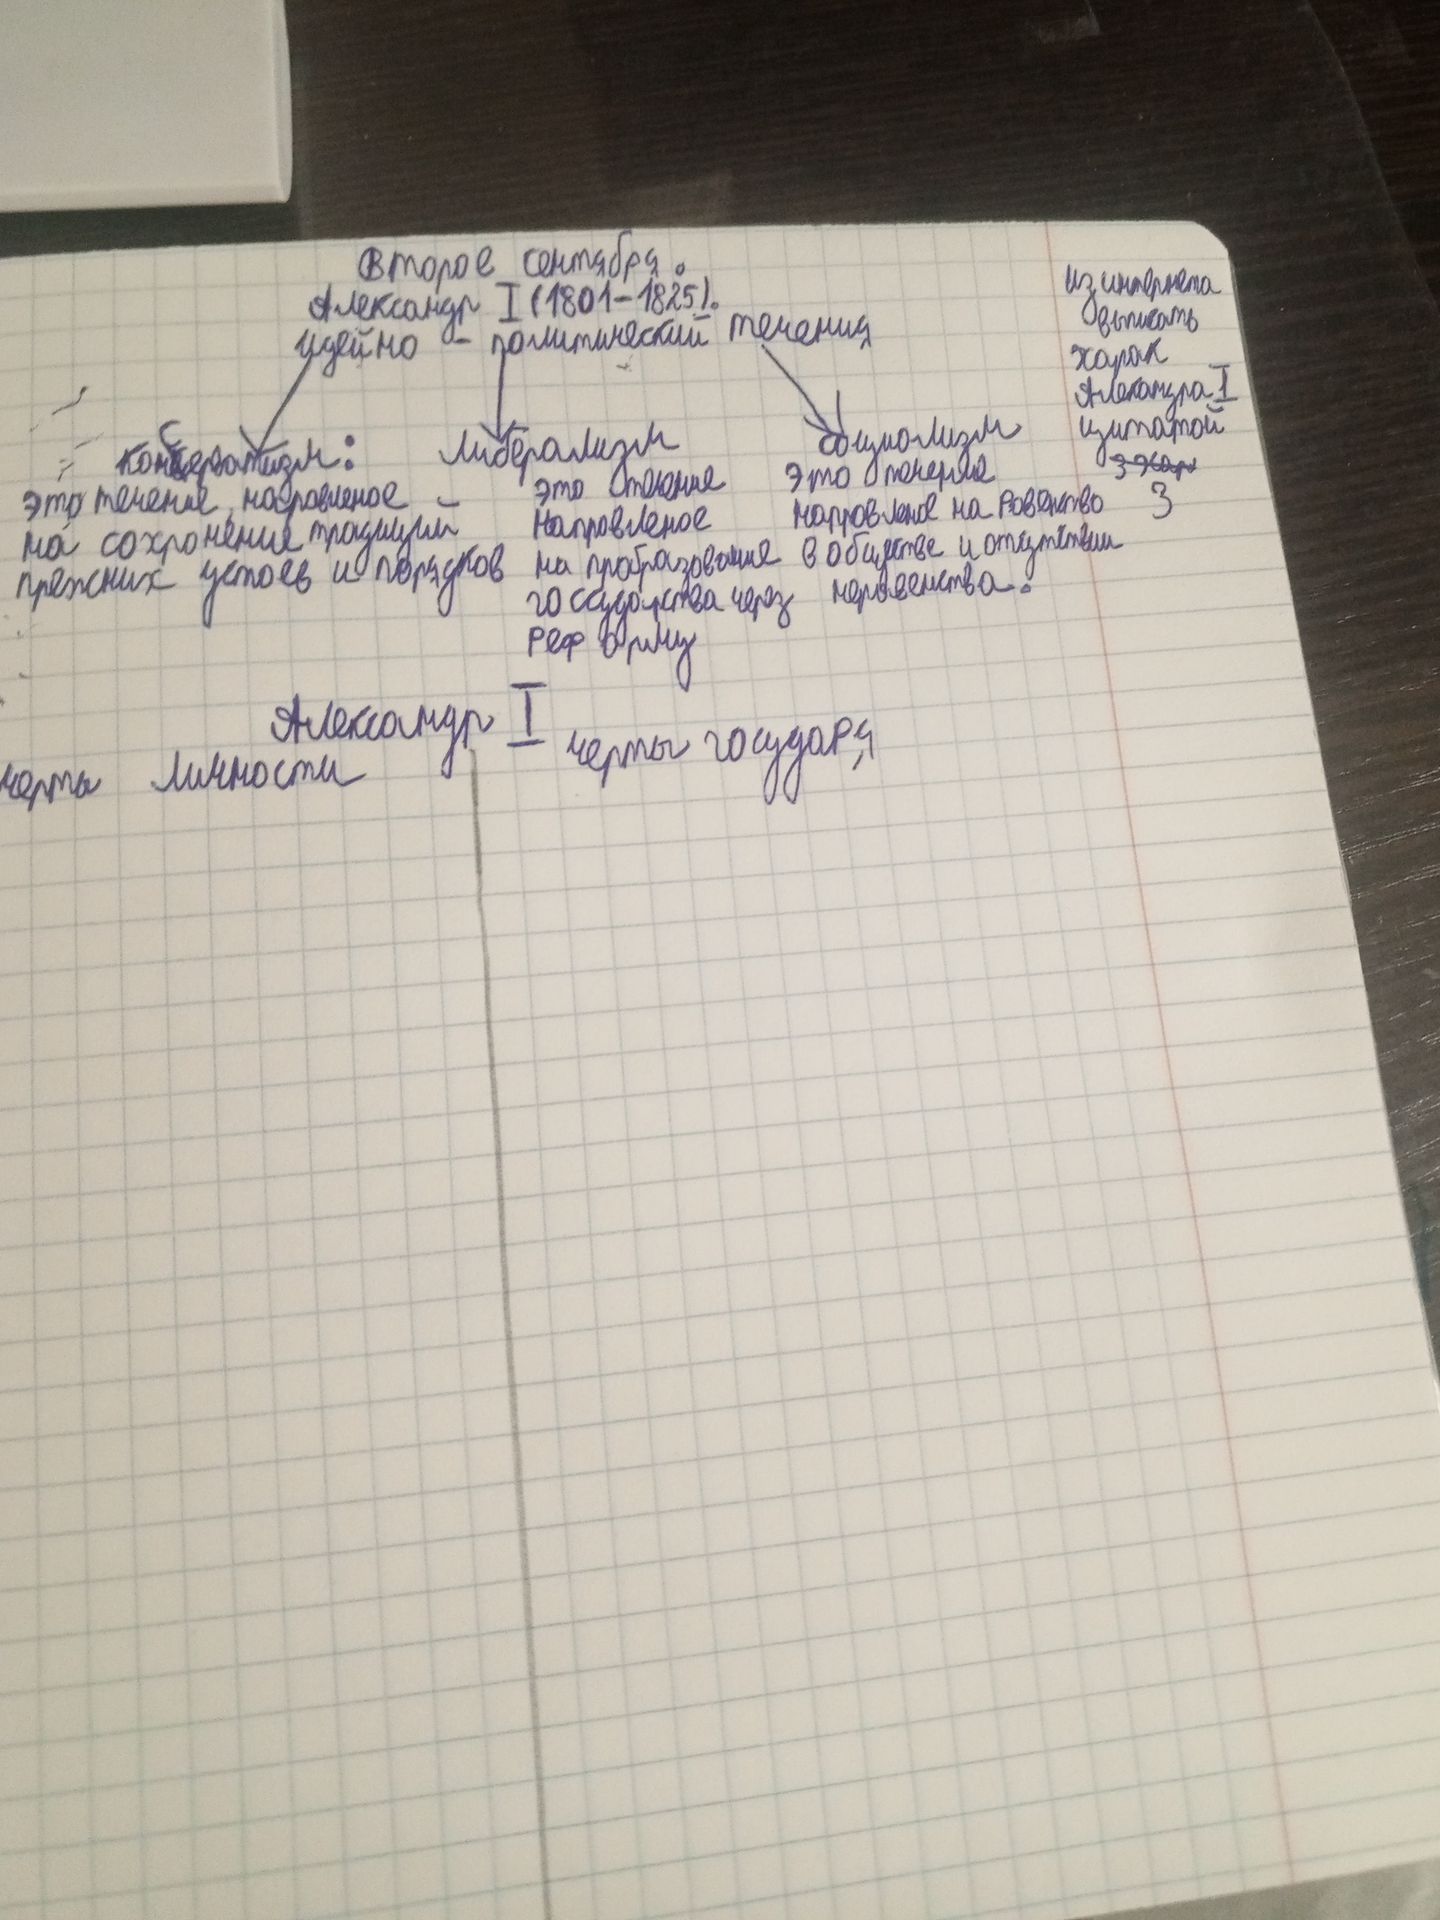 Второе сентября.
Александр I (1801-1825).
идейно - политический течения
Консерватизм:
это течение, направленое
на сохронение традиций
прежних устоев и порядков
Либерализм
это стечение
направленое
на пробразование
госсударства через
реформу
социолизм
это течение
направленое на равенство
в обществе и отсутствии
неровенства.
Из интернета
выписать
харак
Александра I
цитатой
3
Александр I
черты личности
черты государя